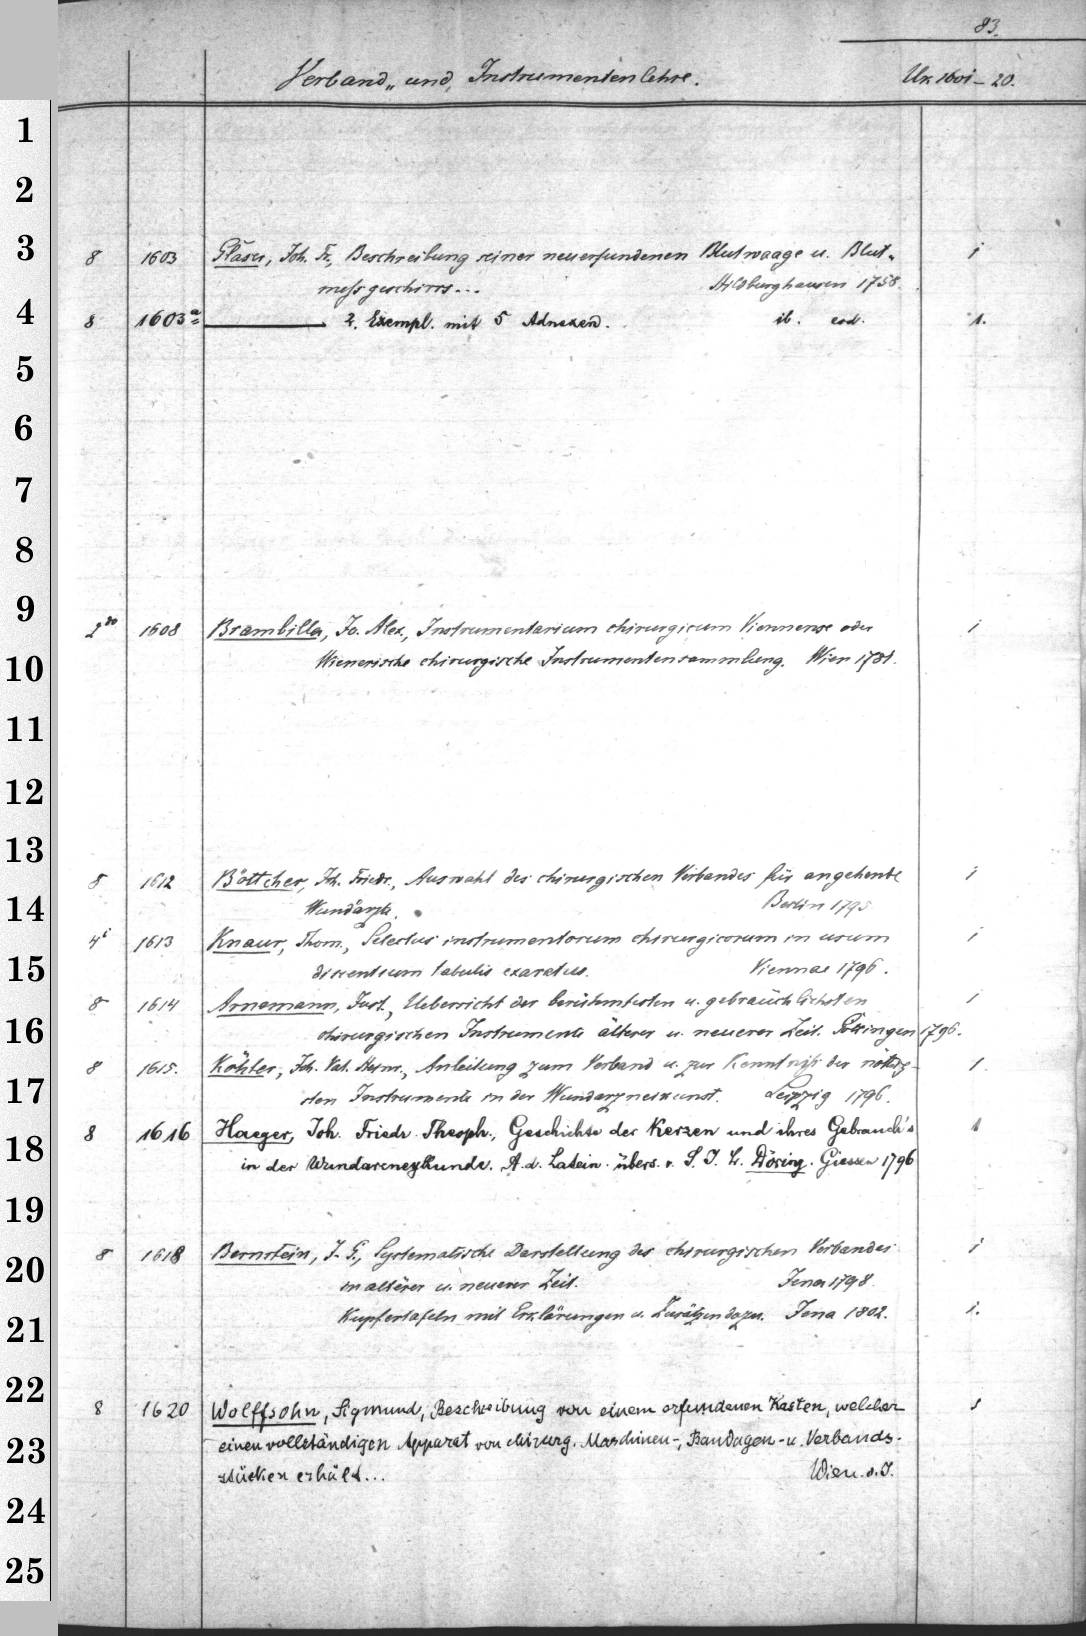 83.
Verband„ und Instrumentenlehre. Nr. 1601–20.
1
2
3
8 1603 Gläser, Joh. Fr., Beschreibung seiner neuerfundenen Blutwaage u. Blut„ 1
messgeschirrs... Hilsburghausen 1758.
4
8 1603a 2. Exempl. mit 5 Adnexen. ib. eod. 1.
5
6
7
8
9
2do 1608 Brambilla, Jo. Alex., Instrumentarium chirurgicum Viennense oder 1
10
Wienerische chirurgische Instrumentensammlung. Wien 1781.
11
12
13
8 1612 Böttcher, Joh. Friedr., Auswahl des chirurgischen Verbandes für angehende 1
14
Wundärzte. Berlin 1795
4o 1613 Knaur, Thom., Selectus instrumentorum chirurgicorum in usum 1
15
discentium tabulis exaratus. Viennae 1796.
8 1614 Arnemann, Just., Uebersicht der berühmtesten u. gebräuchlichsten 1
16
chirurgischen Instrumente älterer u. neuerer Zeit. Göttingen 1796.
8 1615. Köhler, Joh. Val. Heinr., Anleitung zum Verband u. zur Kenntniss der nöthig- 1.
17
sten Instrumente in der Wundarzneikunst. Leipzig 1796.
8 1616 Haeger, Joh. Friedr. Theoph., Geschichte der Kerzen und ihres Gebrauch's 1
18
in der Wundarcneykunde. A. d. Latein. übers. v. S. J. L. Döring. Giessen 1796
19
8 1618 Bernstein, J. G., Systematische Darstellung des chirurgischen Verbandes 1
20
in älterer u. neuerer Zeit. Jena 1798.
Kupfertafeln mit Erklärungen u. Zusätzen dazu. Jena 1802. 1.
21
22
8 1620 Wolffsohn, Sigmund, Beschreibung von einem erfundenen Kasten, welcher 1
23
einen vollständigen Apparat von chirurg. Maschinen-, Bandagen- u. Verbands-
stücken erhält... Wien. o. J.
24
25